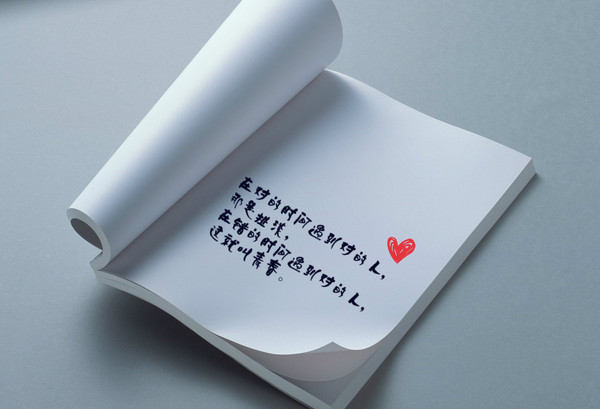 在对的时间遇到对的人，
那是扯淡，
在错的时间遇到对的人，
这就叫青春。